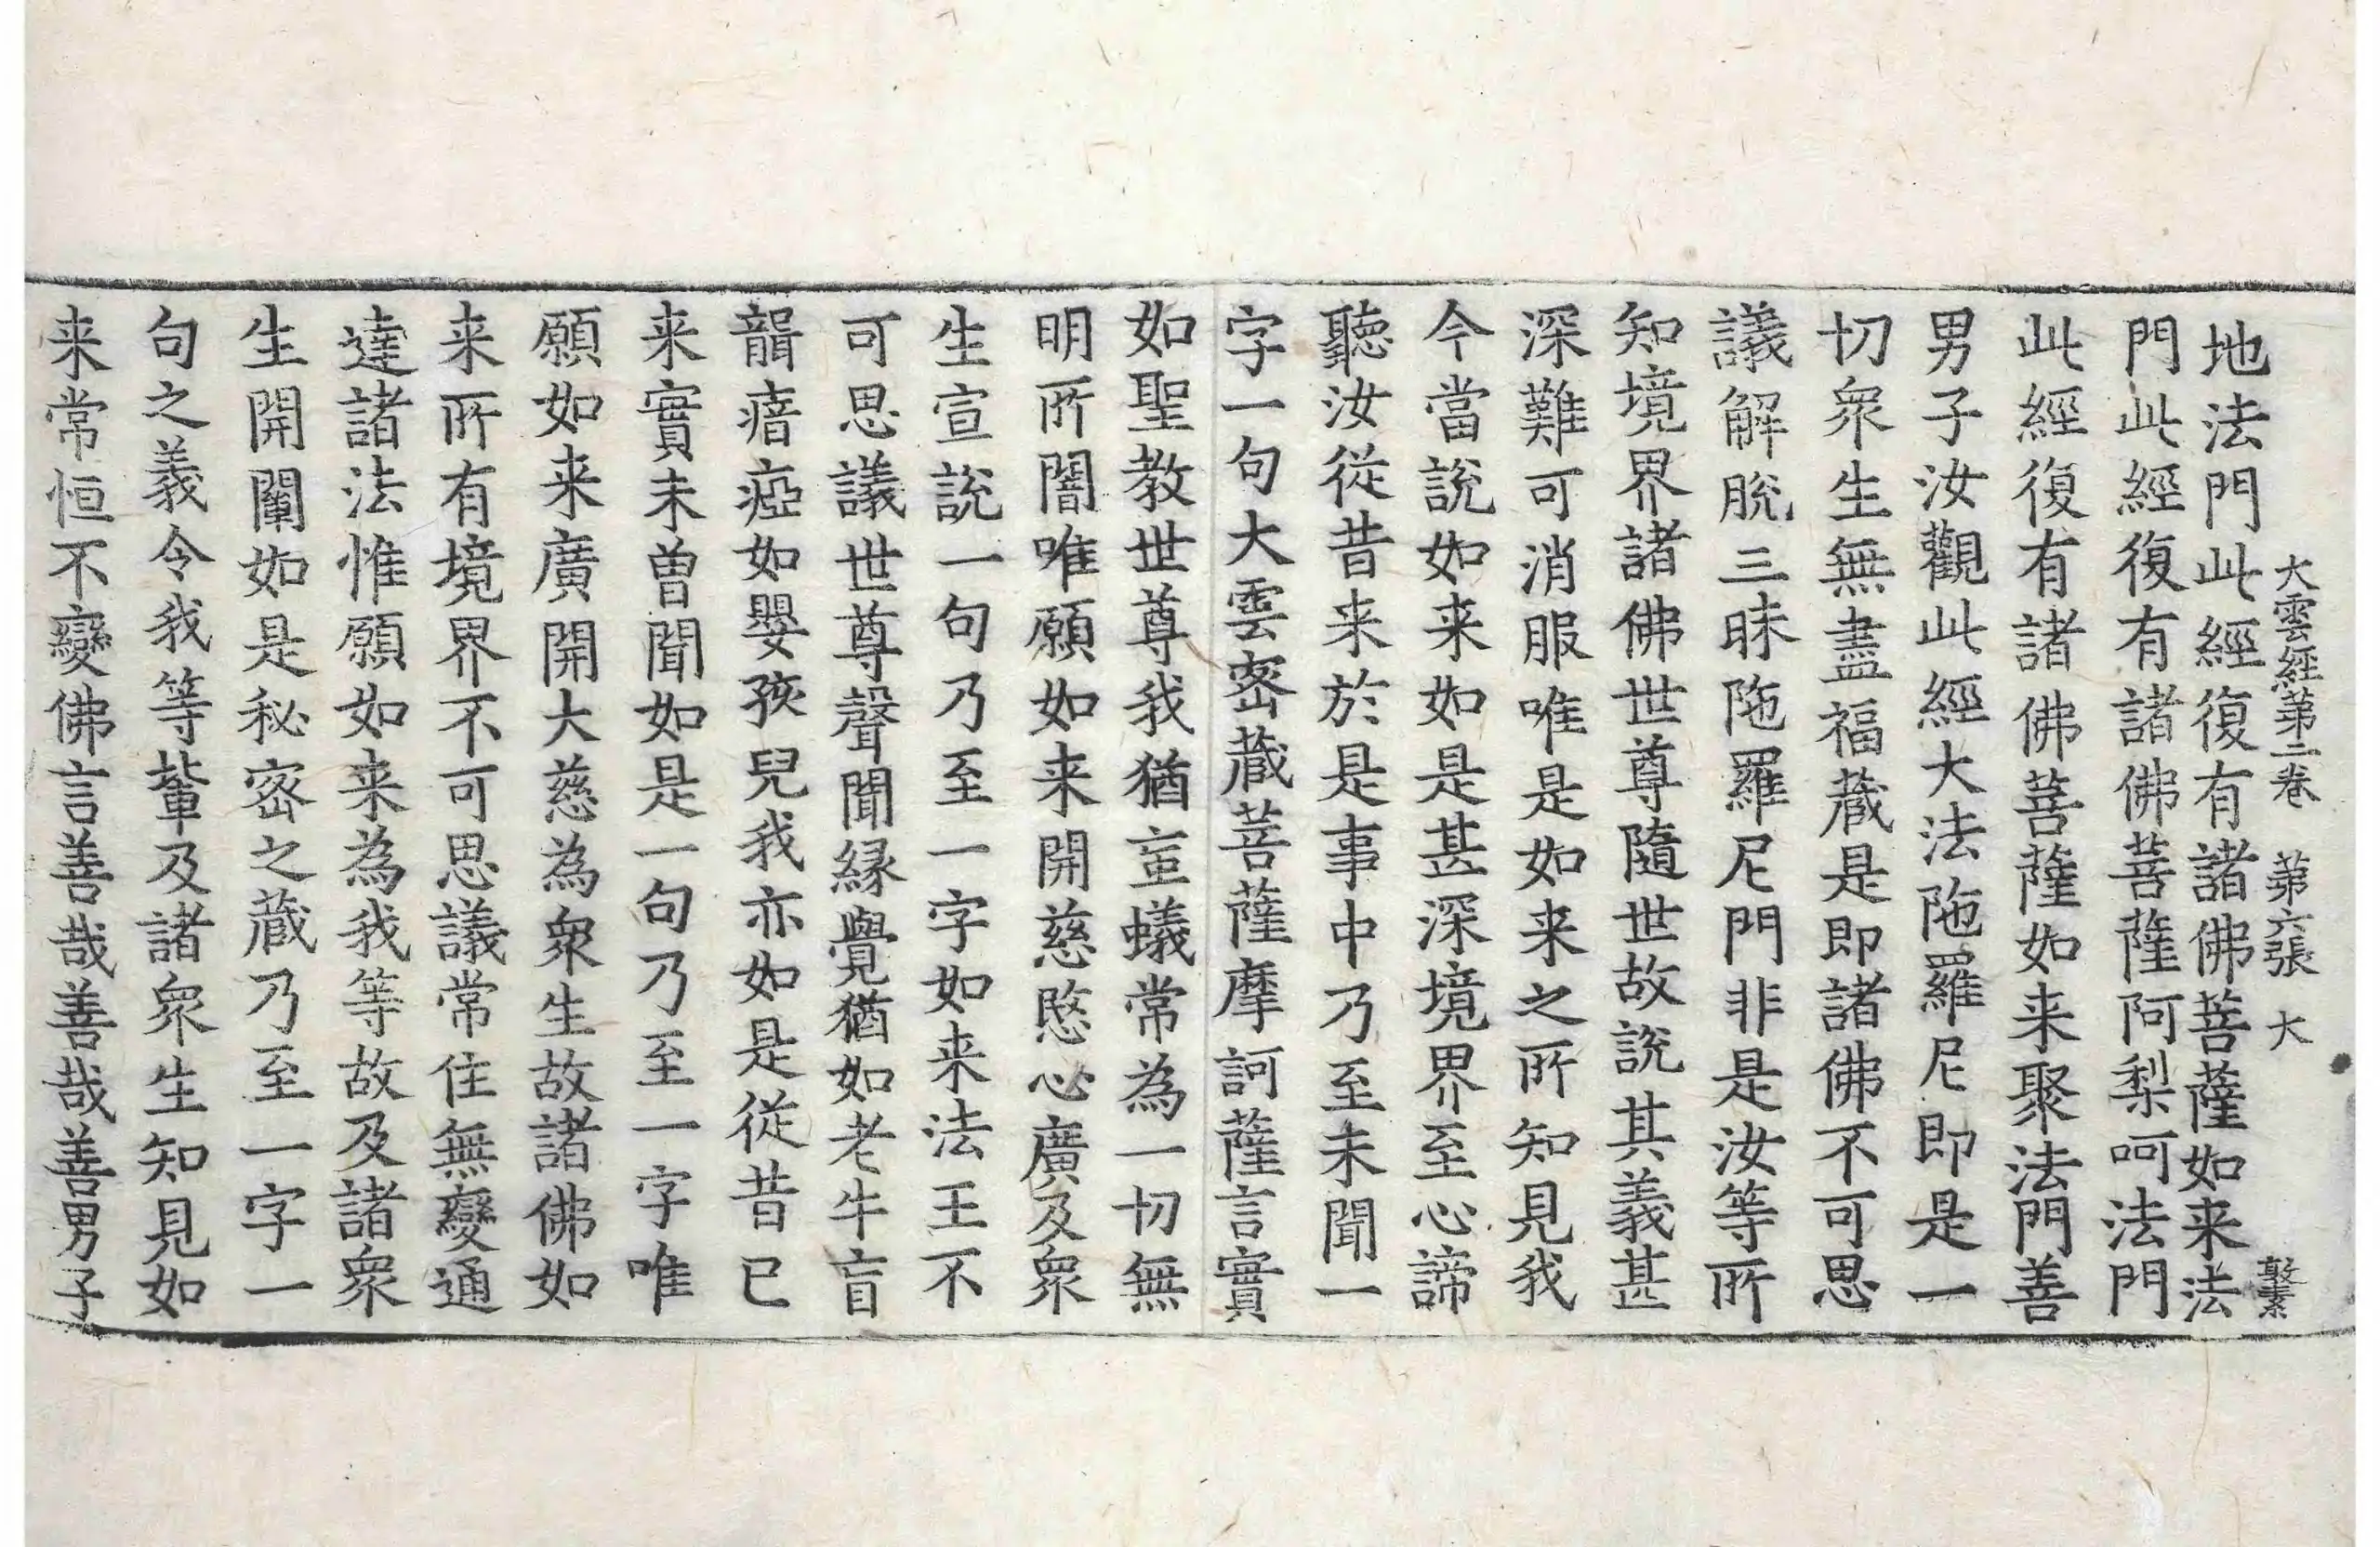 大雲經第二卷 第六張 大
地法門此經復有諸佛菩薩如来法
門此經復有諸佛菩薩阿梨呵法門
此經復有諸佛菩薩如来聚法門善
男子汝觀此經大法陁羅尼即是一
切衆生無盡福蔵是即諸佛不可思
議解脫三昧陁羅尼門非是汝等所
知境界諸佛世尊隨世故說其義甚
深難可消服唯是如来之所知見我
今當說如来如是甚深境界至心諦
聽汝從昔来於是事中乃至未聞一
字一句大雲密蔵菩薩摩訶薩言實
如聖教世尊我猶䖟蟻常為一切無
明所闇唯願如来開慈愍心廣及衆
生宣說一句乃至一字如来法王不
可思議世尊聲聞縁覺猶如老牛盲
聾瘖瘂如嬰孩兒我亦如是從昔已
来實未曽聞如是一句乃至一字唯
願如来廣開大慈為衆生故諸佛如
来所有境界不可思議常住無變通
達諸法惟願如来為我等故及諸衆
生開闡如是秘密之蔵乃至一字一
句之義令我等輩及諸衆生知見如
来常恒不變佛言善哉善哉善男子